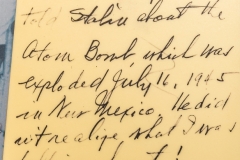 told Stalin about the
Atom Bomb which was
exploded July 16, 1945
in New Mexico. He did
not realize what I was
talking about!